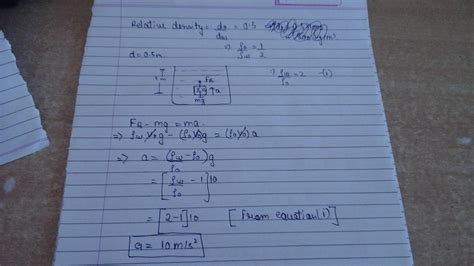 Relative density = d₀/dw = 0.5
⇒ ρ₀/ρw = 1/2
d = 0.5m
⇒ ρw/ρ₀ = 2 —(1)
FB
↑a
mg
FB - mg = ma
⇒ ρw V₀g - (ρ₀V₀)g = (ρ₀V₀)a
⇒ a = (ρw - ρ₀)g/ρ₀
= [ρw/ρ₀ - 1]10
= [2-1]10 [from equation (1)]
a = 10 m/s²